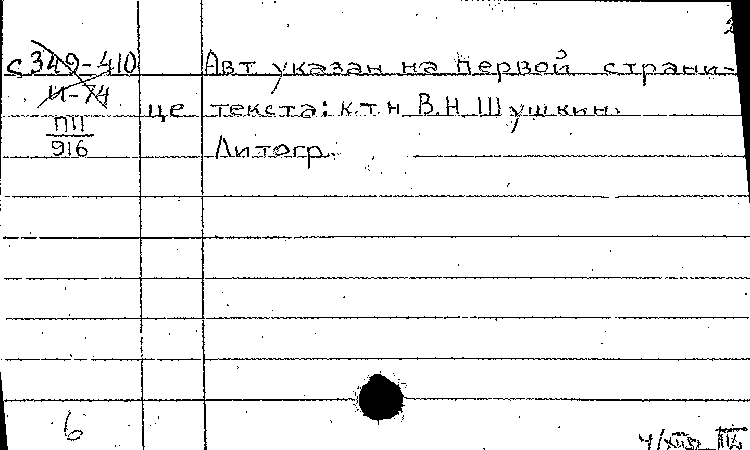 2
с 349-410 Авт указан на первой страни-
И-74
П11 це текста: к.т.н В.Н Шушкин.
916 Литогр.
6